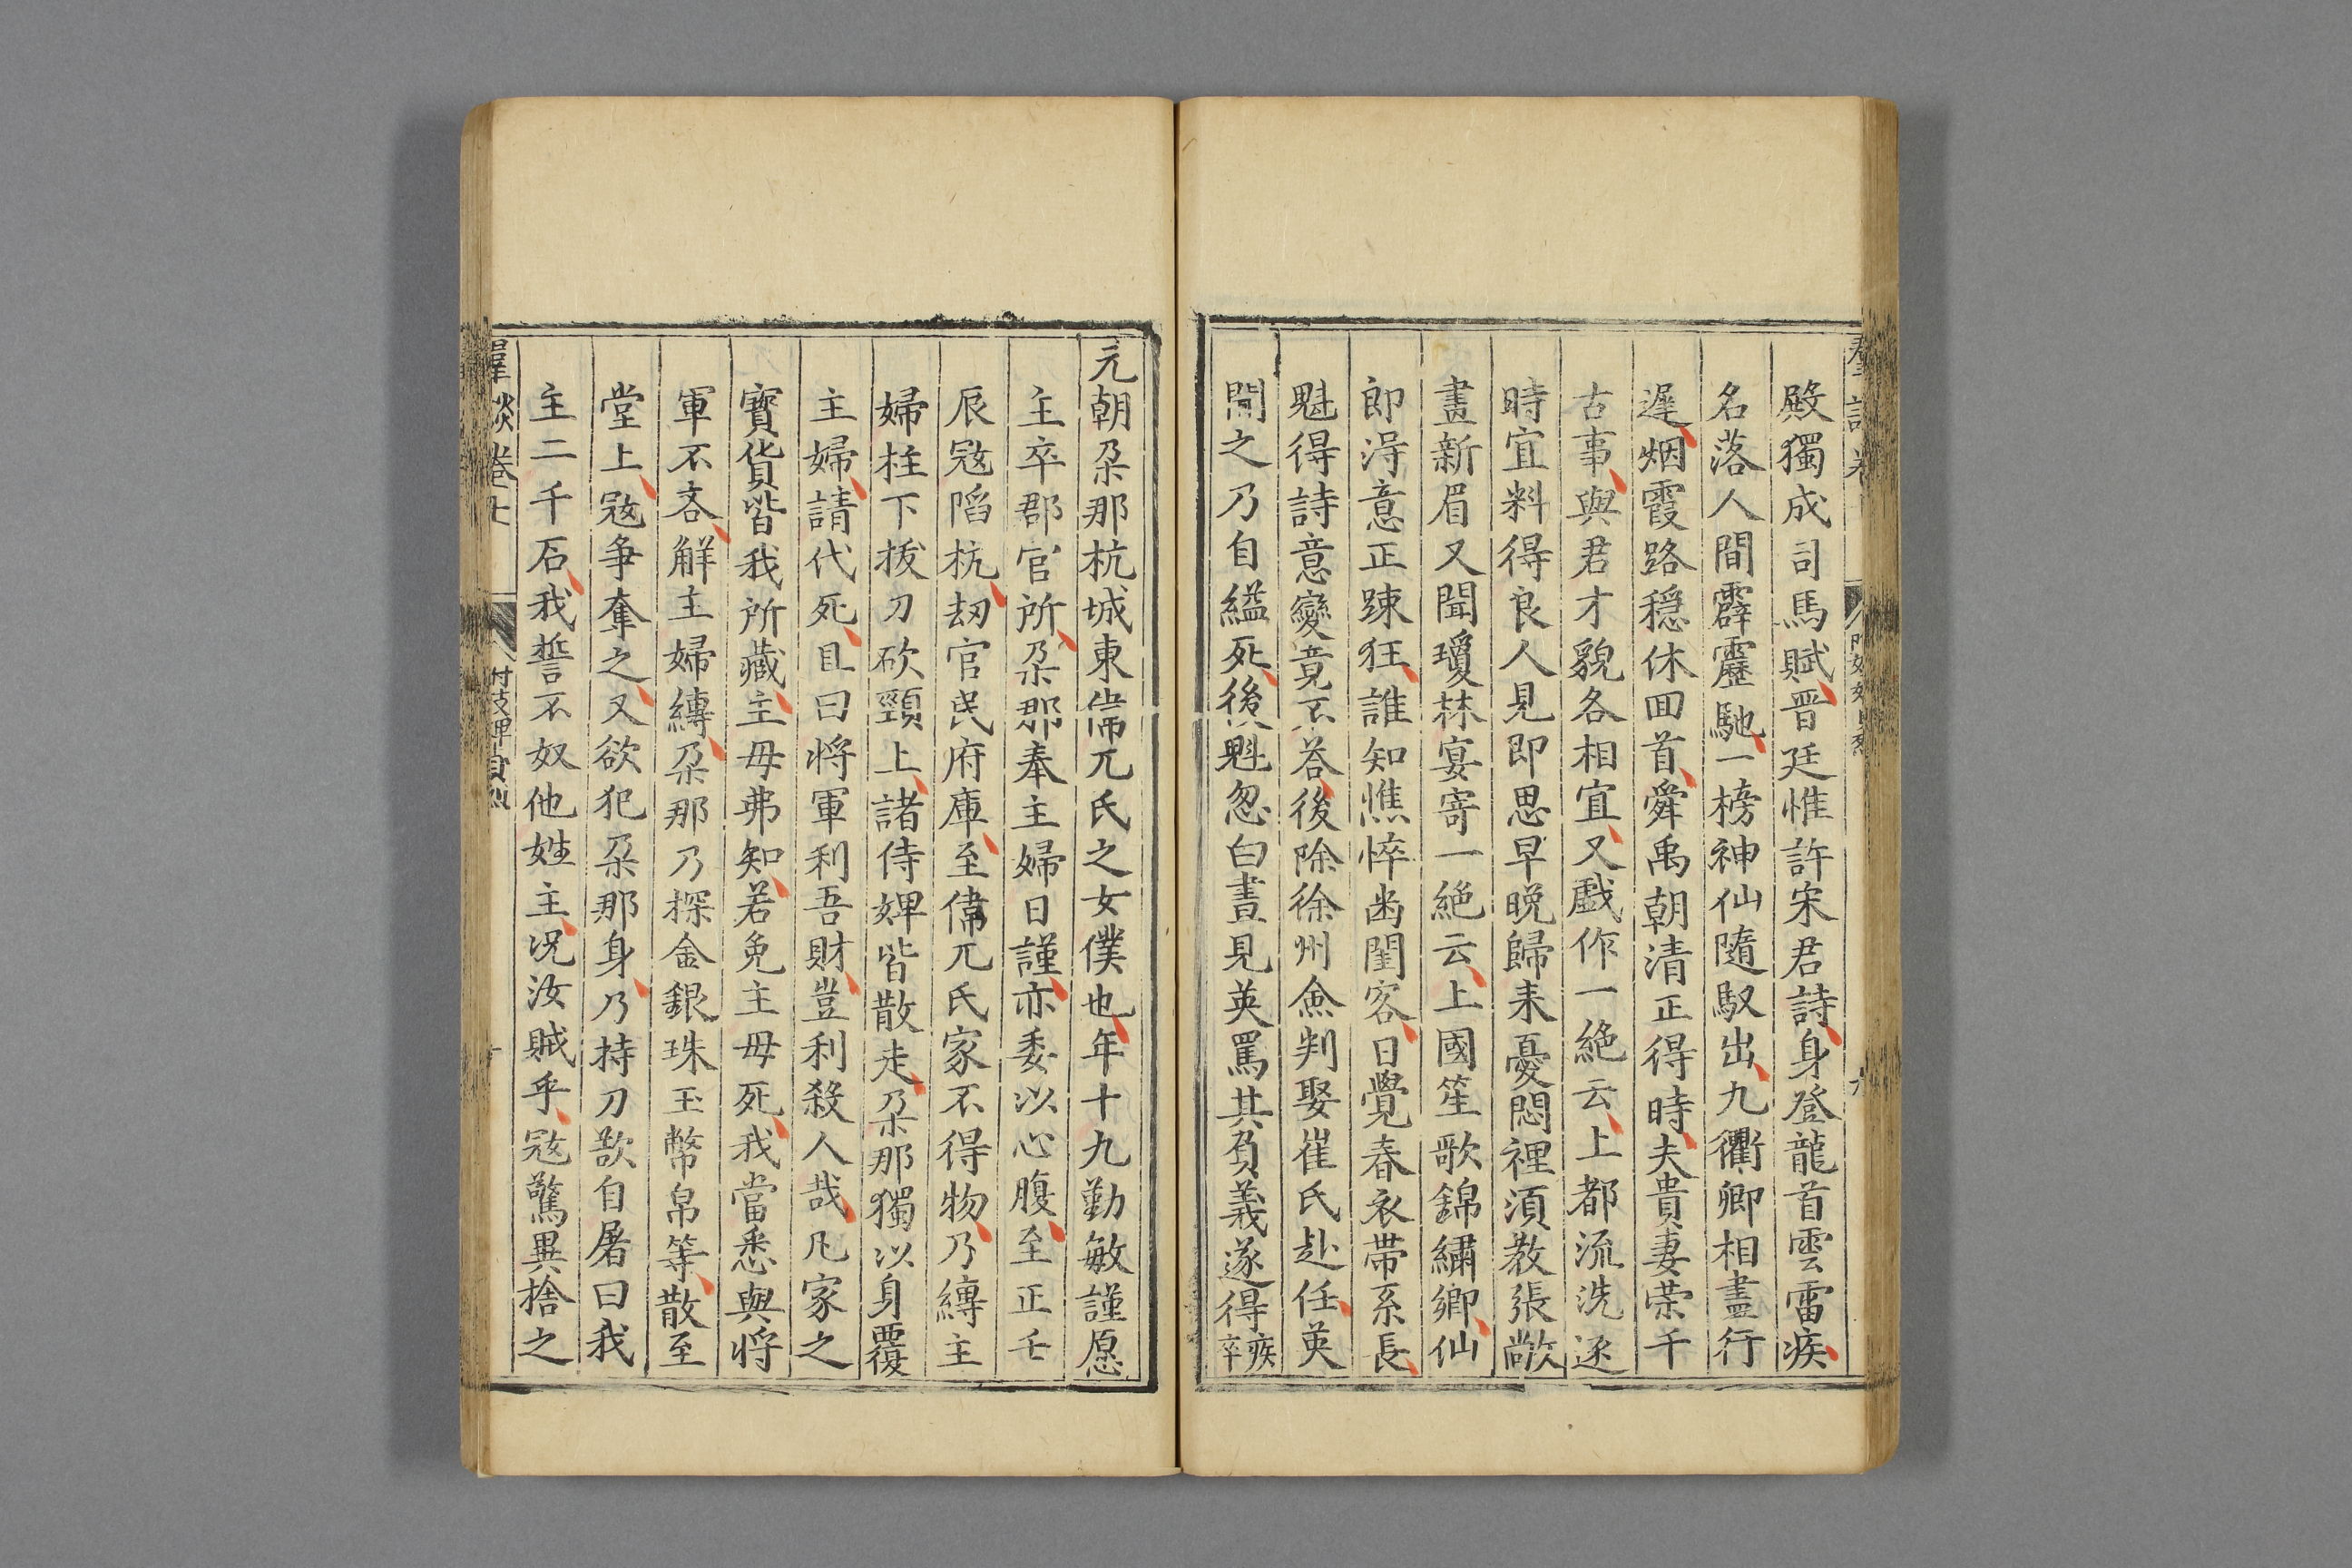 殿獨成司馬賦晋廷惟許宋君詩身登龍首雲雷疾
名落人間霹靂馳一榜神仙隨馭出九衢卿相盡行
遲烟霞路穩休回首舜禹朝清正得時夫貴妻荣千
古事與君才貌各相宜又戲作一絶云上都流洗逐
時宜料得良人見即思早晚歸来憂悶裡湏教張敞
畫新眉又聞瓊林宴寄一絶云上國笙歌錦繡鄉仙
郎淂意正踈狂誰知憔悴幽閨客日覺春衣帶系長
魁得詩意變竟不荅後除徐州僉判娶崔氏赴任英
聞之乃自縊死後魁忽白晝見英罵其負義遂得疾卒
元朝朶那杭城東偁兀氏之女僕也年十九勤敏謹愿
主卒郡官所朶那奉主婦日謹亦委以心腹至正壬
辰冦陷杭刼官民府庫至偁兀氏家不得物乃縛主
婦柱下拔刀砍頸上諸侍婢皆散走朶那獨以身覆
主婦請代死且曰将軍利吾財豈利殺人哉凡家之
寶貨皆我所藏主毋弗知若免主毋死我當悉與将
軍不吝觧主婦縛朶那乃探金銀珠玉幣帛等散至
堂上冦争奪之又欲犯朶那身乃持刀欲自屠曰我
主二千石我誓不奴他姓主况汝賊乎冦驚異捨之
羣談卷七